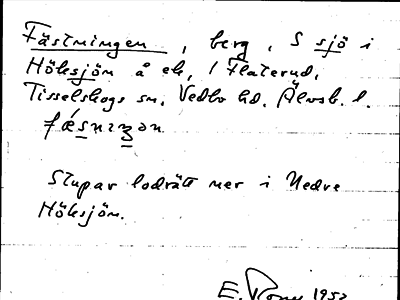 Fästningen, berg, S sjö i
Höksjön å ek, 1 Flaterud,
Tisselskogs sn, Vedbo hd, Älvsb. l.
fǽsnɪȝən
Stupar lodrätt ner i Nedre
Höksjön.
E. 1952